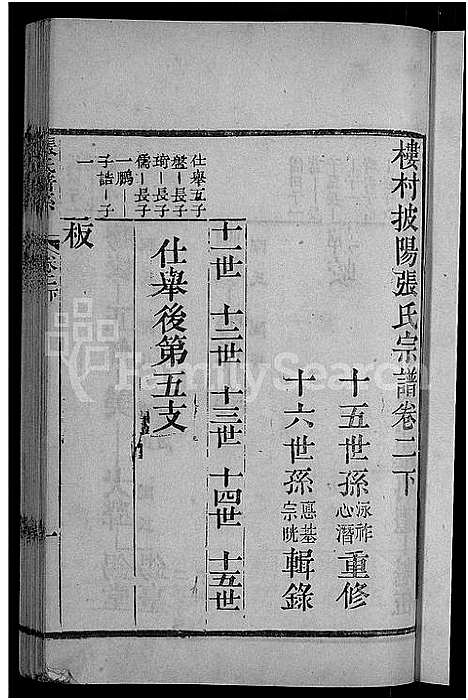 樓村披陽張氏宗譜卷二下
十五世孫泳祚心潛重修
十六世孫惠基宗晄輯錄
十一世 十二世 十三世 十四世 十五世
仕舉後第五支
仕舉五子
盤一長子
琦一長子
儒一長子
一鵬一
子詰一子
一
板
一
FamilySearch